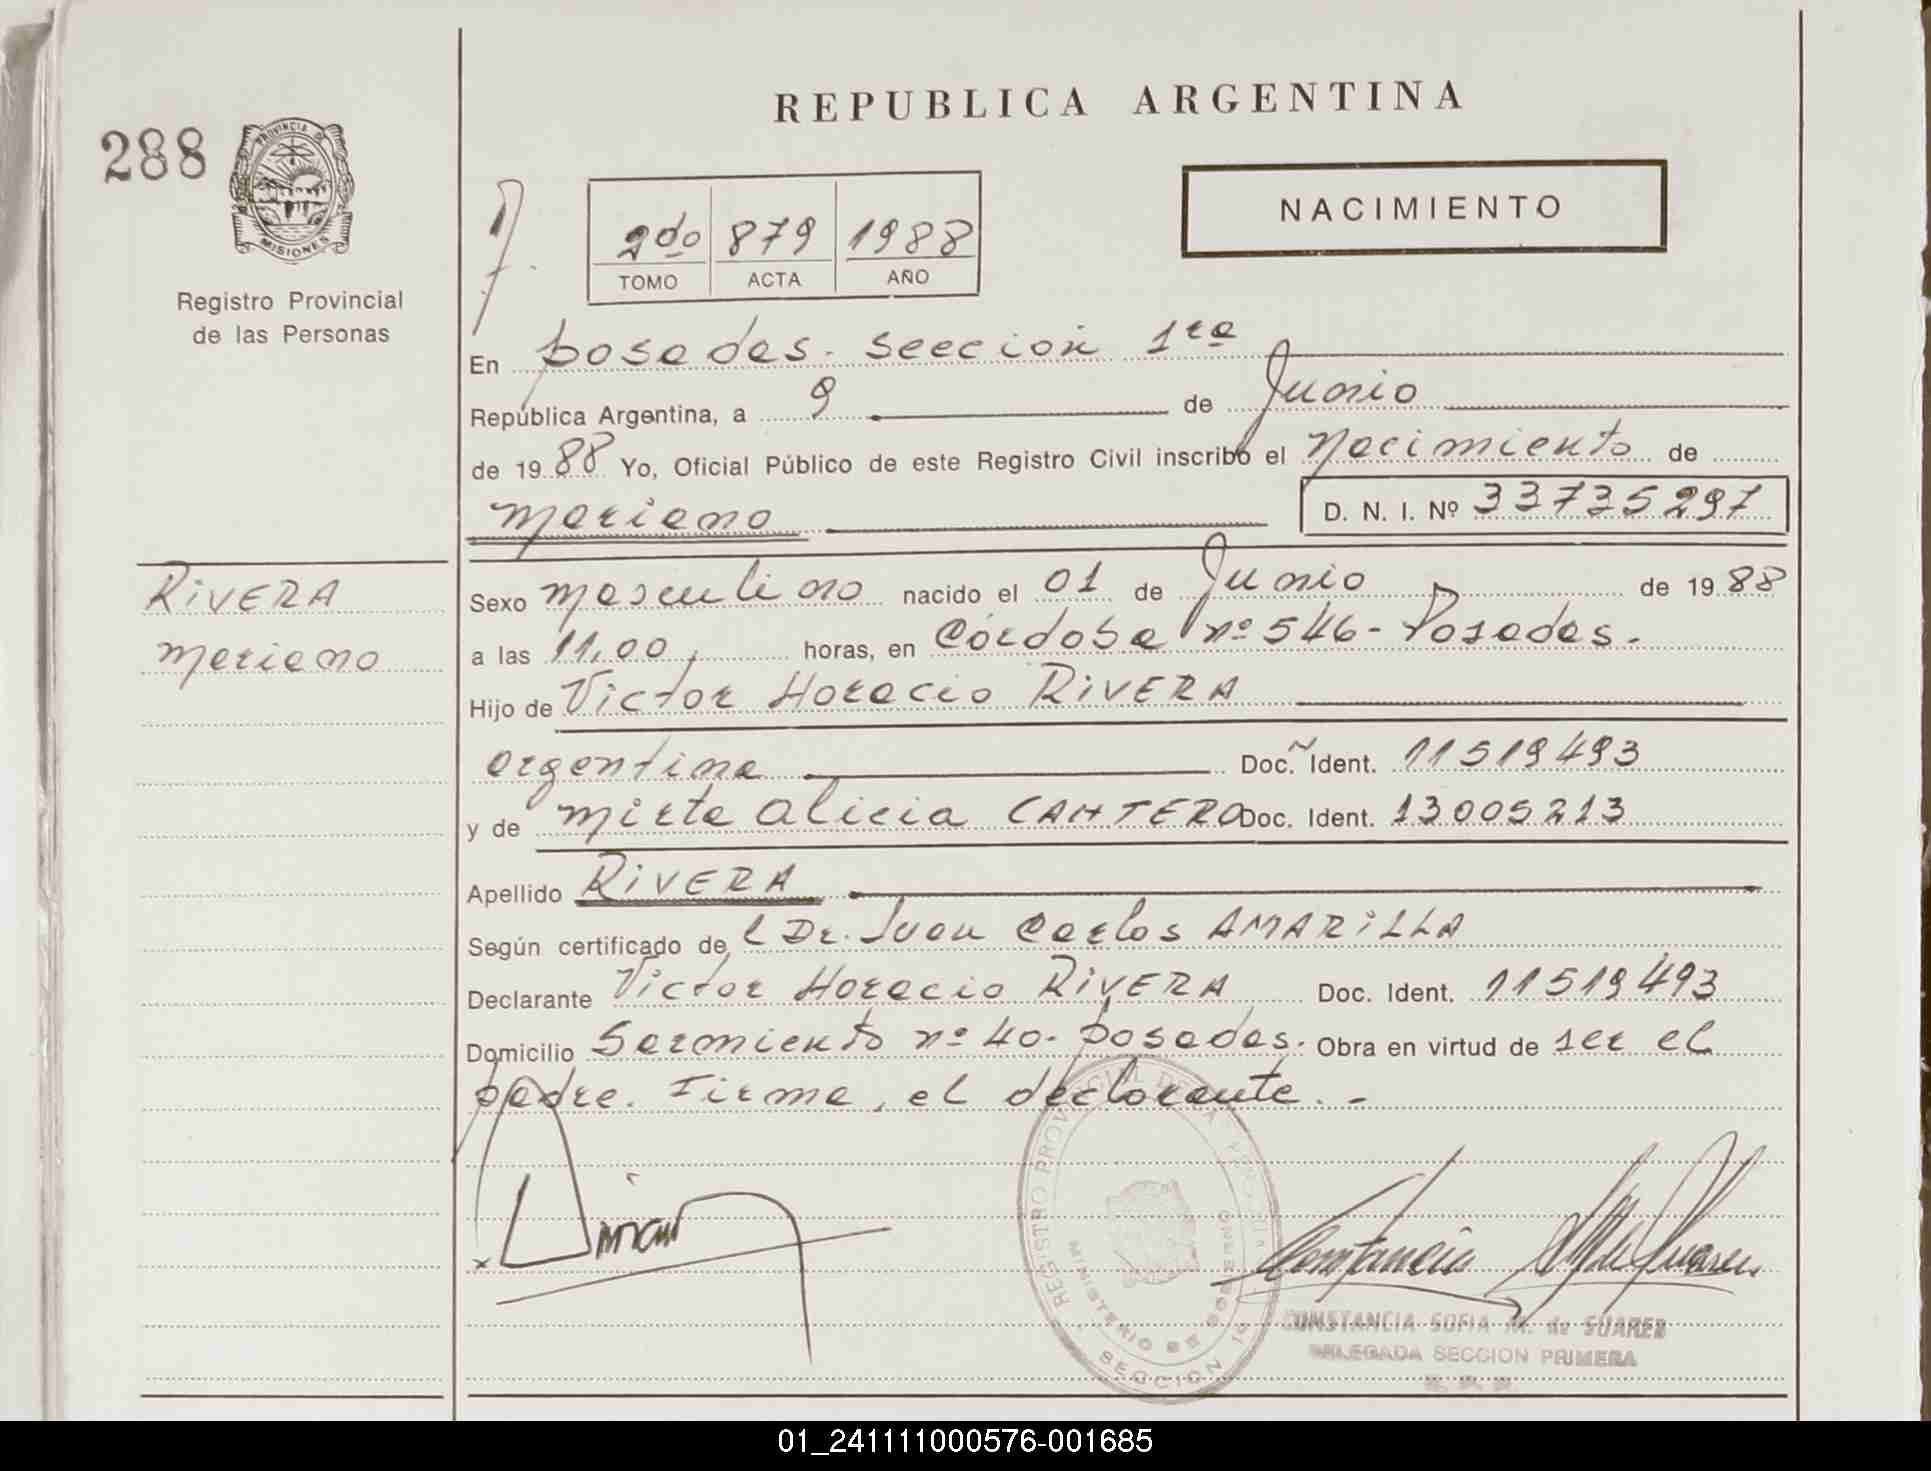 REPUBLICA ARGENTINA
288
PROVINCIA DE
MISIONES
Registro Provincial
de las Personas
NACIMIENTO
2do 879 1988
TOMO ACTA AÑO
En posadas. sección 1ra
República Argentina, a 9 de Junio
de 1988 Yo, Oficial Público de este Registro Civil inscribo el Nacimiento de
mariano D. N. I. Nº 33735297
RIVERA
mariano
Sexo masculino nacido el 01 de Junio de 1988
a las 11,00, horas, en Córdoba nº 546- Posadas.
Hijo de Victor Horacio RIVERA
argentina Doc. Ident. 11519493
y de mirta alicia CANTERO Doc. Ident. 13005213
Apellido RIVERA
Según certificado de l Dr. Juan Carlos AMARILLA
Declarante Victor Horacio RIVERA Doc. Ident. 11519493
Domicilio Sarmiento nº 40. posadas. Obra en virtud de ser el
padre. Firma, el declarante. -
REGISTRO PROVINCIAL DE LAS PERSONAS
MINISTERIO DE GOBIERNO
SECCION 1ª
Constancia SM de Suarez
CONSTANCIA SOFIA M. de SUAREZ
DELEGADA SECCION PRIMERA
01_241111000576-001685